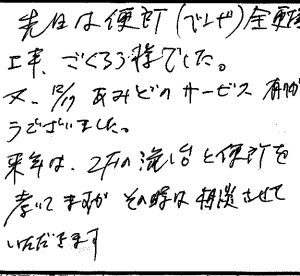 先日は便所(でんせん)全面
工事、ごくろう様でした。
又、12/17 あみどのサービス 有がと
うございました。
来年は、2Fの流し台と便所を
考いてますが その時は相談させて
いただきます